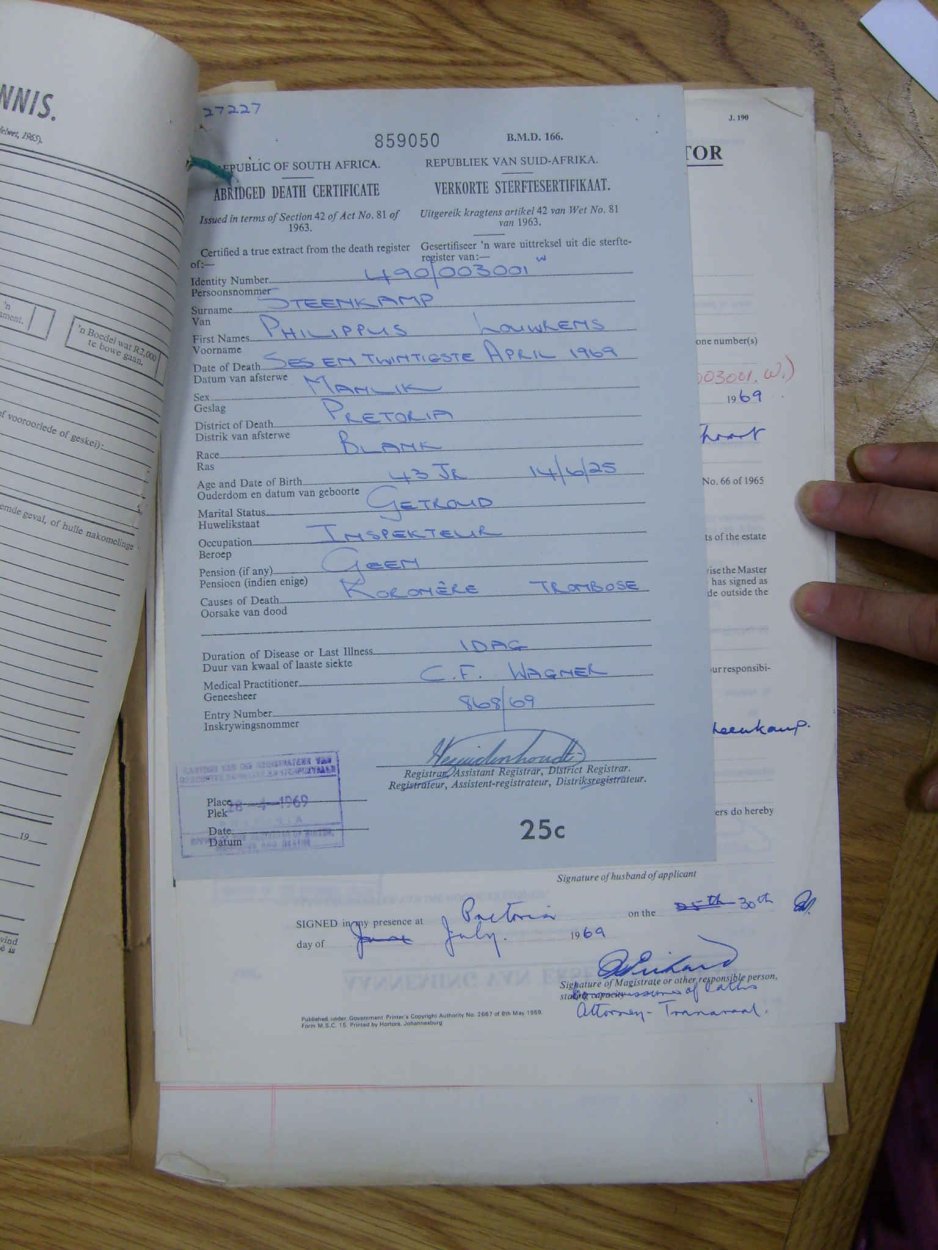 NNIS.
27227
859050
B.M.D. 166.
J. 190
TOR
REPUBLIC OF SOUTH AFRICA.
REPUBLIEK VAN SUID-AFRIKA.
ABRIDGED DEATH CERTIFICATE
VERKORTE STERFTESERTIFIKAAT.
Issued in terms of Section 42 of Act No. 81 of 1963.
Uitgereik kragtens artikel 42 van Wet No. 81 van 1963.
Certified a true extract from the death register of:—
Gesertifiseer 'n ware uittreksel uit die sterfteregister van:—
Identity Number 490/003001 W
Persoonsnommer
Surname STEENKAMP
Van
First Names PHILIPPUS LOUWRENS
Voorname
Date of Death SES EN TWINTIGSTE APRIL 1969
Datum van afsterwe
Sex MANLIK
Geslag
District of Death PRETORIA
Distrik van afsterwe
Race BLANK
Ras
Age and Date of Birth 43 JR 14/6/25
Ouderdom en datum van geboorte
Marital Status GETROUD
Huwelikstaat
Occupation INSPEKTEUR
Beroep
Pension (if any) GEEN
Pensioen (indien enige)
Causes of Death KORONÊRE TROMBOSE
Oorsake van dood
Duration of Disease or Last Illness 1 DAG
Duur van kwaal of laaste siekte
Medical Practitioner C.F. WAGNER
Geneesheer
Entry Number 868/69
Inskrywingsnommer
Registrar, Assistant Registrar, District Registrar.
Registrateur, Assistent-registrateur, Distriksregistrateur.
Place
Plek
28 -4- 1969
Date
Datum
25c
'n Boedel wat R2,000 te bowe gaan.
one number(s)
003001. W.)
1969
No. 66 of 1965
ts of the estate
ise the Master
has signed as
de outside the
ur responsibi-
teenkamp.
ers do hereby
Signature of husband of applicant
SIGNED in my presence at Pretoria on the 25th 30th
day of June July. 1969
Signature of Magistrate or other responsible person,
Attorney - Transvaal.
Published under Government Printer's Copyright Authority No. 2667 of 8th May 1959.
Form M.S.C. 15. Printed by Hortors, Johannesburg